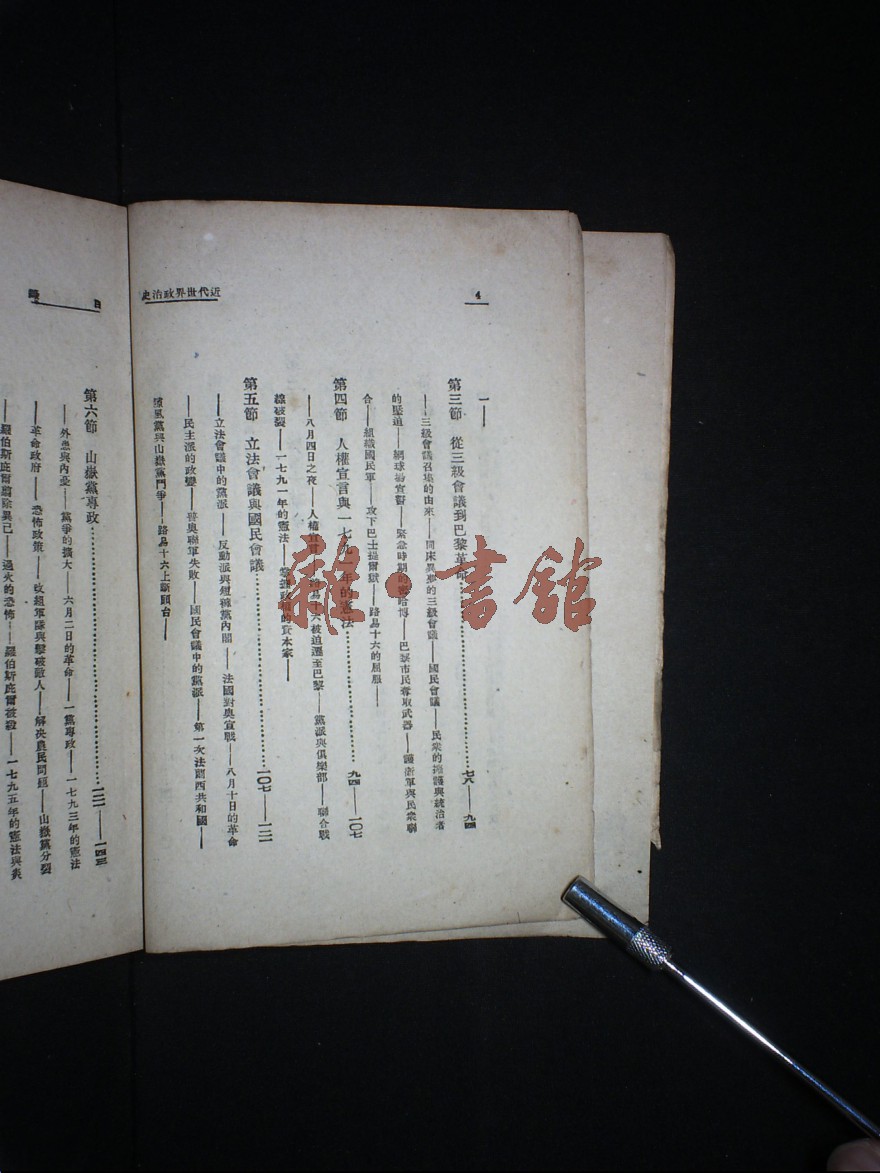 4
近代世界政治史
一——
第三節　從三級會議到巴黎革命……七八——九四
——三級會議召集的由來——同床異夢的三級會議——國民會議——民衆的擁護與統治者
的壓迫——網球場宣誓——緊急時期的宮哈博——巴黎市民奪取武器——護衛軍與民衆聯
合——組織國民軍——攻下巴士提爾獄——路易十六的屈服——
第四節　人權宣言與一七九一年的憲法……九四——一〇七
——八月四日之夜——人權宣言——路易十六被迫遷至巴黎——黨派與俱樂部——聯合戰
線破裂——一七九一年的憲法——政權的資本家——
第五節　立法會議與國民會議……一〇七——一二一
——立法會議中的黨派——反動派與短褲黨內閣——法國對奧宣戰——八月十日的革命
——民主派的政變——普奧聯軍失敗——國民會議中的黨派——第一次法蘭西共和國——
黨與山嶽黨鬥爭——路易十六上斷頭台——
目錄
第六節　山嶽黨專政……一二一——一四三
——外患與內憂——黨爭的擴大——六月二日的革命——一黨專政——一七九三年的憲法
——革命政府——恐怖政策——改組軍隊與擊破敵人——解決農民問題——山嶽黨分裂
——羅伯斯庇爾肅除異己——過火的恐怖——羅伯斯庇爾被殺——一七九五年的憲法與炎
雜·書館